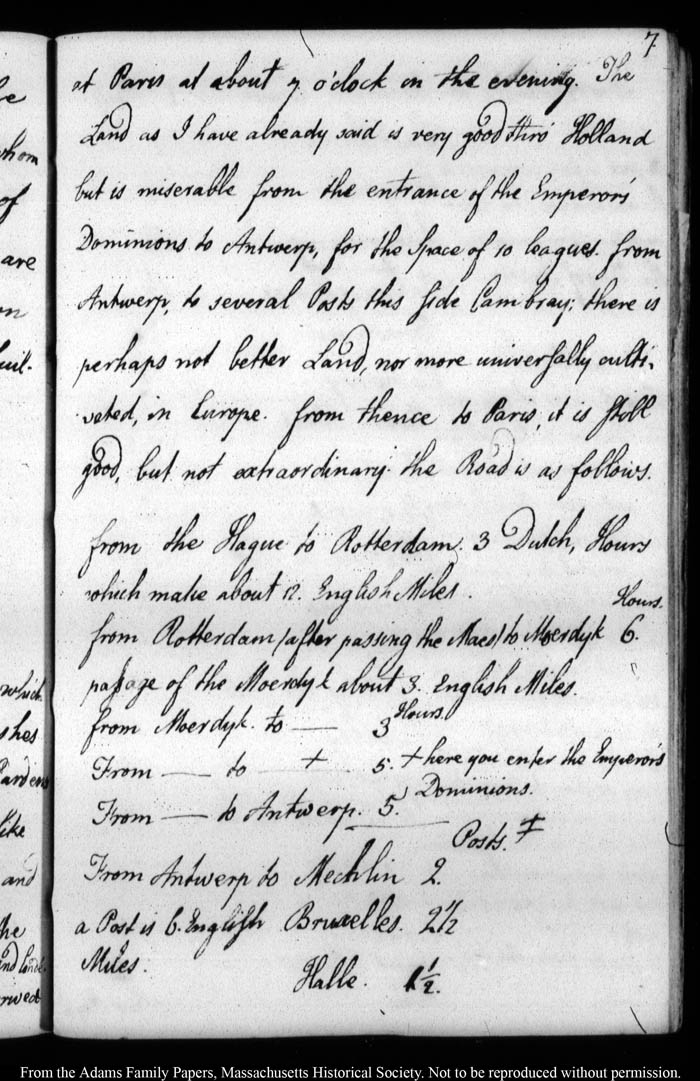 7
at Paris at about 7 o'clock in the evening. The
Land as I have already said is very good thro' Holland
but is miserable from the entrance of the Emperor's
Dominions to Antwerp, for the Space of 10 leagues. from
Antwerp, to several Posts this side Cambray; there is
perhaps not better Land, nor more universally culti-
vated, in Europe. from thence to Paris, it is still
good, but not extraordinary. the Road is as follows.
from the Hague to Rotterdam. 3 Dutch, Hours
which make about 12. English Miles.
Hours.
from Rotterdam (after passing the Maes) to Moerdyk 6.
passage of the Moerdyk about 3. English Miles.
from Moerdyk. to —— 3 Hours.
From —— to —— + 5. + here you enter the Emperor's
Dominions.
From —— to Antwerp. 5.
Posts. ‡
From Antwerp to Mechlin 2.
a Post is 6. English Bruxelles. 2 1/2
Miles.
Halle. 1 1/2.
he
whom
of
are
on
which
shes
Gardens
like
and
the
From the Adams Family Papers, Massachusetts Historical Society. Not to be reproduced without permission.